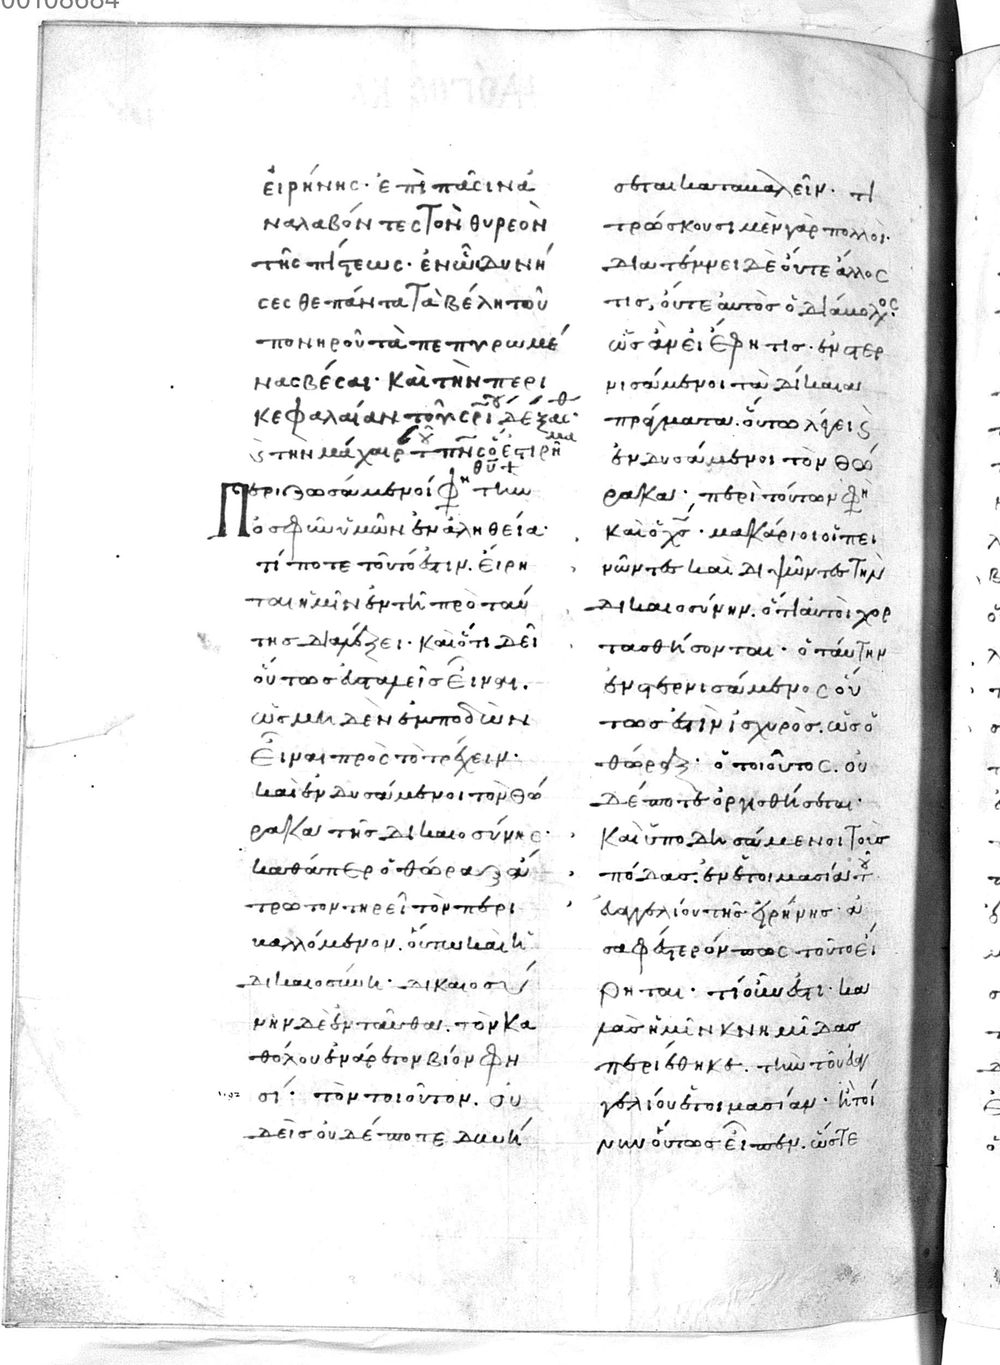 00108684
εἰρήνης· ἐπὶ πᾶσιν ἀ
ναλαβόντες τὸν θυρεὸν
τῆς πίστεως· ἐν ᾧ δυνή
σεσθε πάντα τὰ βέλη τοῦ
πονηροῦ τὰ πεπυρωμέ
να σβέσαι· καὶ τὴν περι
κεφαλαίαν τοῦ σρι δέξασθ
τὴν μάχαιρ τ πνς ὅ ἐστι ρημα
θυ +
Περιζωσάμενοί φη τὴν
ὀσφὺν ὑμῶν ἐν ἀληθεία·
τί ποτε τοῦτό ἐστιν. εἴρη
ται ἡμῖν ἐν τῆ πρὸ ταύ
της διαλέξει· καὶ ὅτι δεῖ
οὕτως εὐσταλεῖς εἶναι.
ὡς μηδὲν ἐμποδὼν
εἶναι πρὸς τὸ τρέχειν·
καὶ ἐνδυσάμενοι τὸν θώ
ρακα τῆς δικαιοσύνης·
καθάπερ ὁ θώραξ ἄ
τρωτον τηρεῖ τὸν περι
βαλλόμενον. οὕτω καὶ ἡ
δικαιοσύνη· δικαιοσύ
νην δὲ ἐνταῦθα. τὸν κα
θόλου ἐνάρετον βίον φη
σί· τὸν τοιοῦτον. οὐ
δεὶς οὐδέποτε δυνή
σεται καταβαλεῖν· τι
τρώσκουσι μὲν γὰρ πολλοί·
διατέμνει δὲ οὔτε ἄλλος
τις, οὔτε αὐτὸς ὁ διάβολος·
ὡσανεὶ ἔφη τις· ἐνστερ
νισάμενοι τὰ δίκαια
πράγματα. οὕτω λέγεις
ἐνδυσάμενοι τὸν θώ
ρακα· περὶ τούτων φη
καὶ ὁ χς· μακάριοι οἱ πει
νῶντες καὶ διψῶντες τὴν
δικαιοσύνην. ὅτι αὐτοὶ χορ
τασθήσονται· ὁ ταύτην
ἐνστερνισάμενος οὕ
τως ἐστὶν ἰσχυρὸς. ὡς ὁ
θώραξ· ὁ τοιοῦτος. οὐ
δέποτε ὀργισθήσεται·
καὶ ὑποδησάμενοι τοὺς
πόδας. ἐν ἑτοιμασία τ
εὐαγγελίου τῆς εἰρήνης· ἀ
σαφέστερόν πως τοῦτο εἴ
ρηται· τί οὖν ἐστι· κα
λὰς ἡμῖν κνημῖδας
περιέθηκε. τὴν τοῦ εὐαγ
γελίου ἑτοιμασίαν· ἤτοι
νυν οὕτως εἶπεν. ὥστε